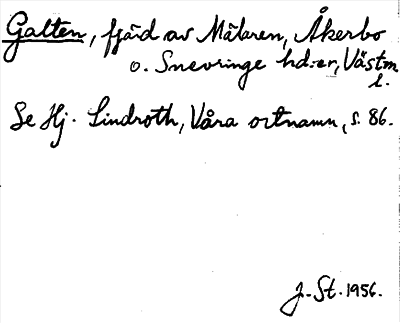 Galten, fjärd av Mälaren, Åkerbo
o. Snevringe hd:er, Västm
l.
Se Hj. Lindroth, Våra ortnamn, s. 86.
J. St. 1956.